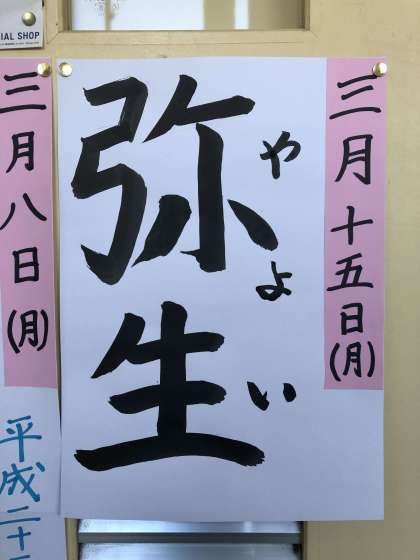 三月十五日(月)
やよい
弥生
三月八日(月)
平成二十
IAL SHOP